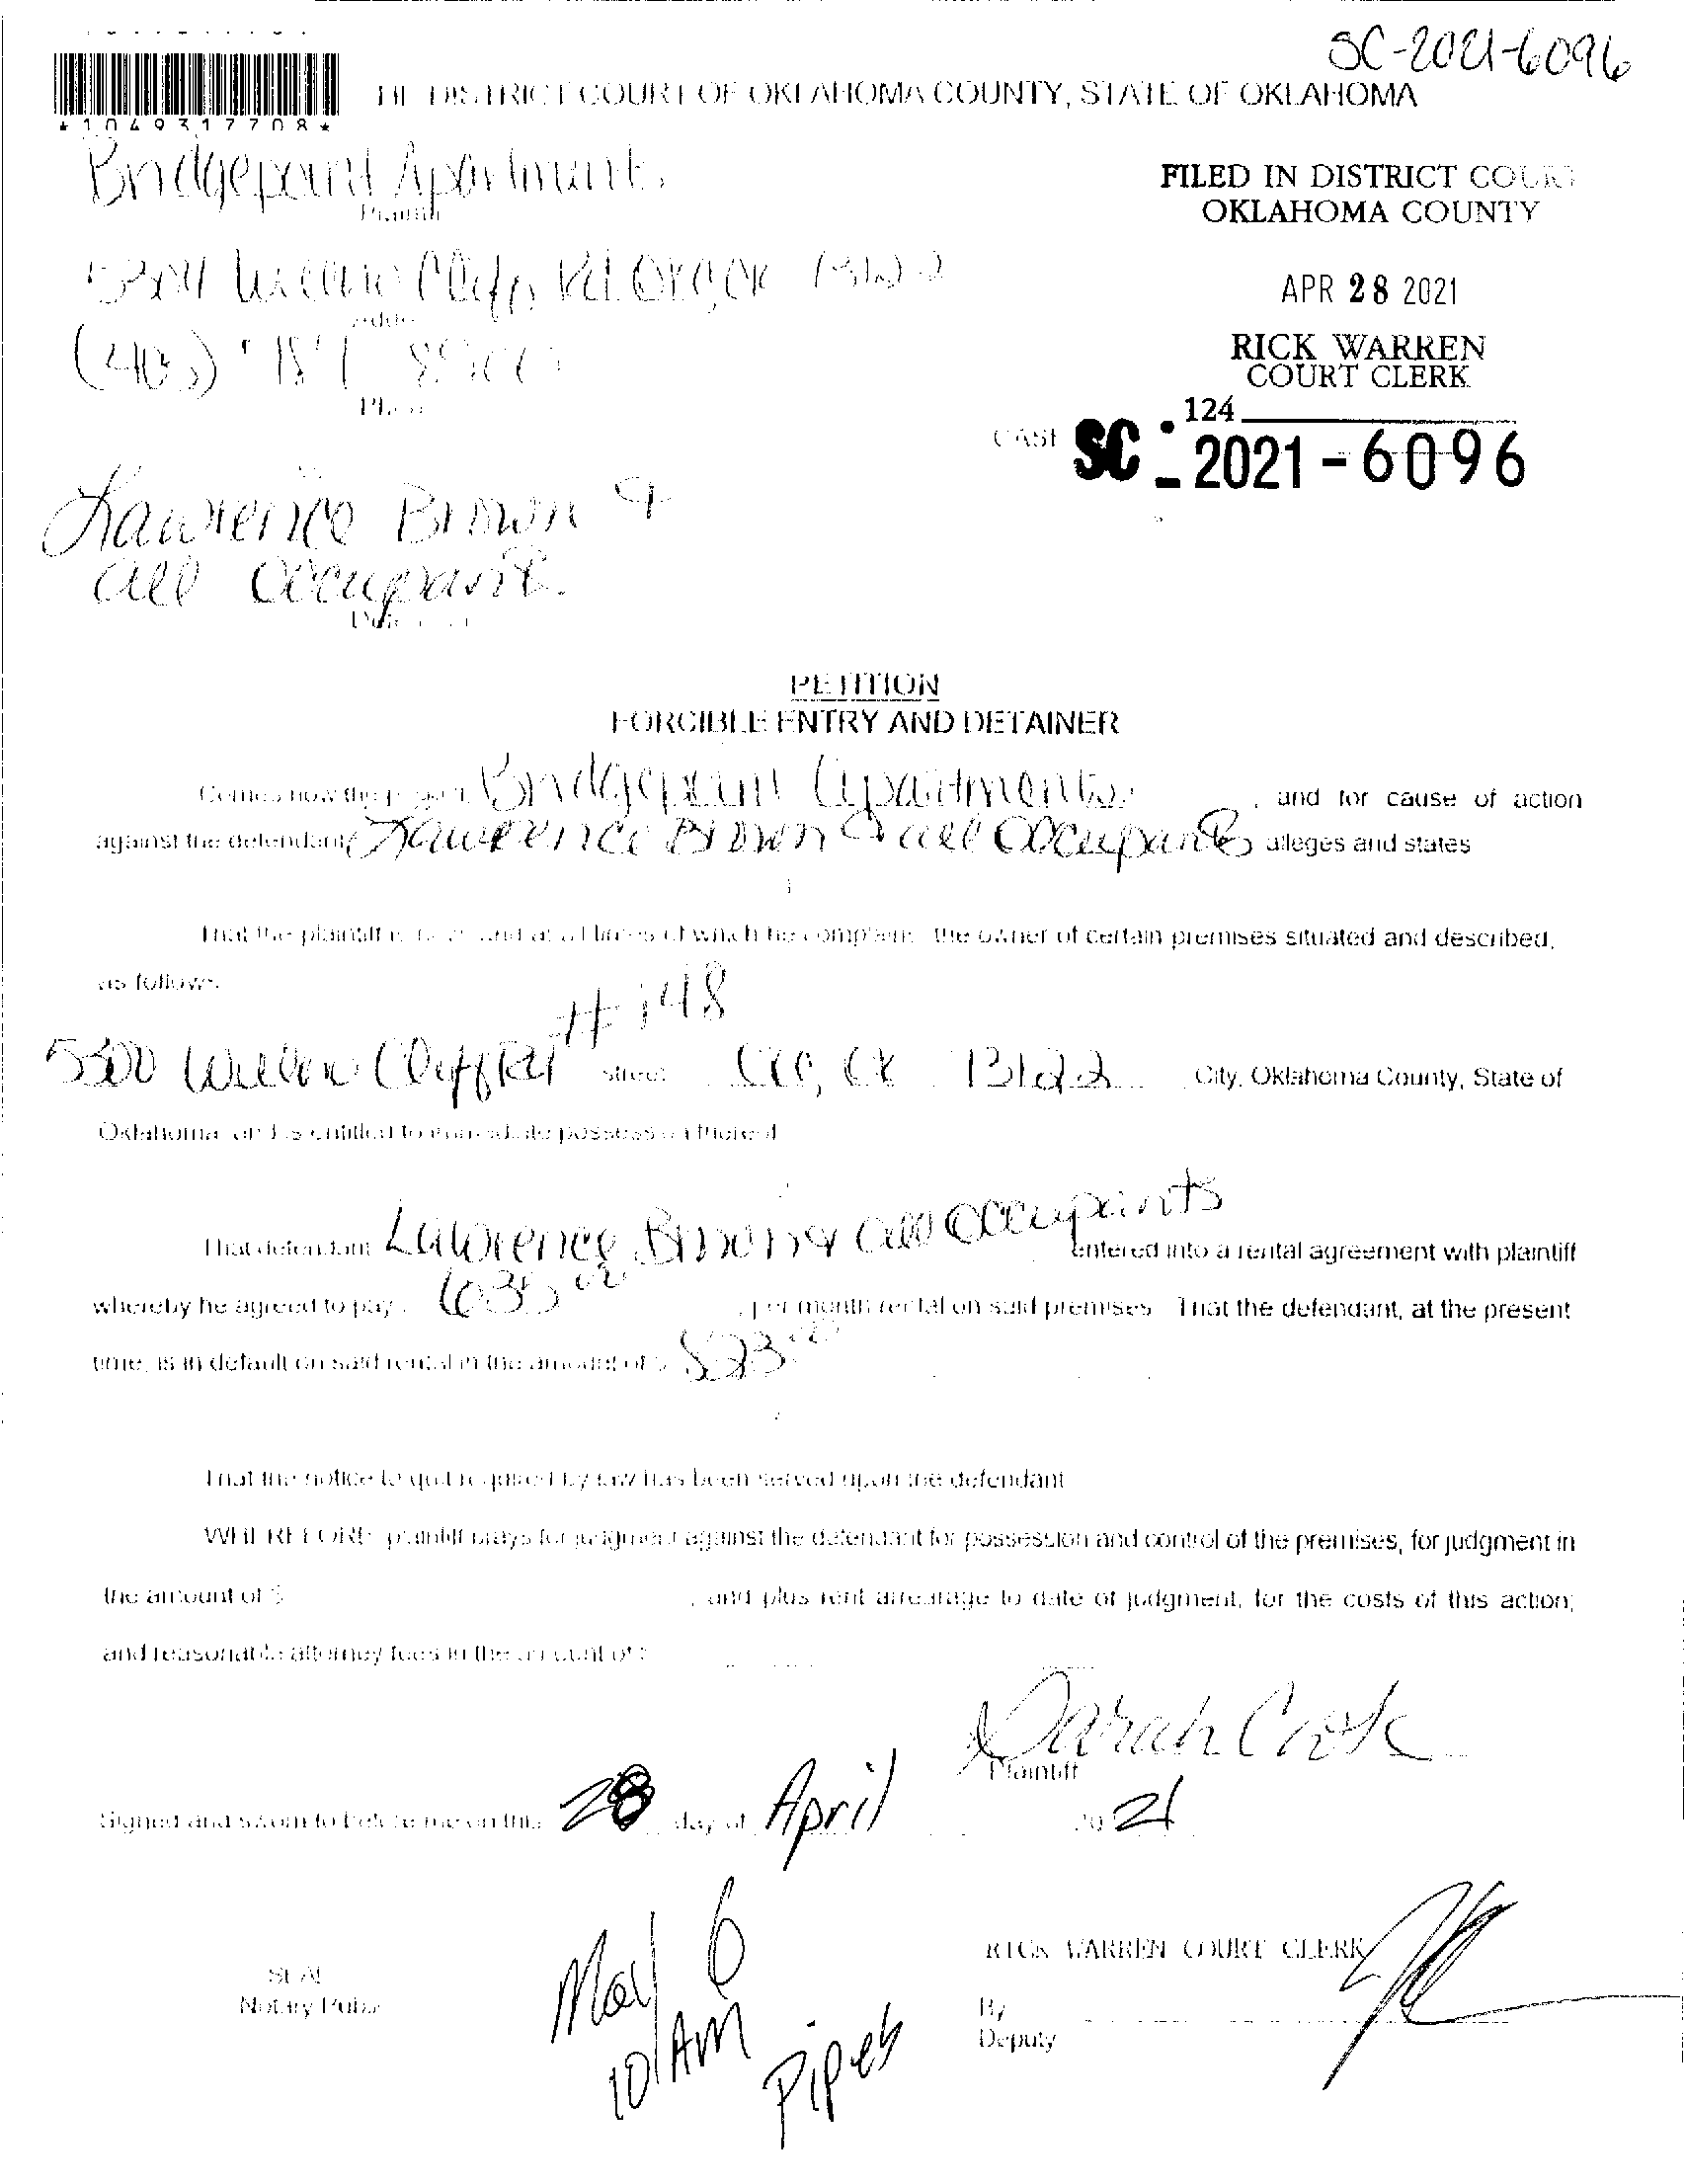 SC-2021-6096
DISTRICT COURT OF OKLAHOMA COUNTY, STATE OF OKLAHOMA
*1049317708*
Bridgepoint Apartments
Plaintiff
FILED IN DISTRICT COURT
OKLAHOMA COUNTY
Willow Cliff Rd
APR 28 2021
(405)
RICK WARREN
COURT CLERK
124
CASE SC - 2021-6096
Lawrence Brown &
all Occupants
PETITION
FORCIBLE ENTRY AND DETAINER
Comes now the plaintiff, Bridgepoint Apartments, and for cause of action
against the defendant, Lawrence Brown & all Occupants alleges and states
That the plaintiff is now and at all times of which he complains the owner of certain premises situated and described,
as follows:
#148
5300 Willow Cliff Rd Street OKC, OK 73122 City, Oklahoma County, State of
Oklahoma and is entitled to immediate possession thereof
That defendant Lawrence Brown & all Occupants entered into a rental agreement with plaintiff
whereby he agreed to pay 635.00 per month rental on said premises That the defendant, at the present
time, is in default on said rental in the amount of $
That the notice to quit required by law has been served upon the defendant
WHEREFORE plaintiff prays for judgment against the defendant for possession and control of the premises, for judgment in
the amount of $ , and plus rent arrearage to date of judgment, for the costs of this action;
and reasonable attorney fees in the amount of $
Sarah Cook
Plaintiff
Signed and sworn to before me on this 28 day of April 20 21
May 6
10 AM
Pipes
RICK WARREN COURT CLERK
SEAL
Notary Public
By
Deputy